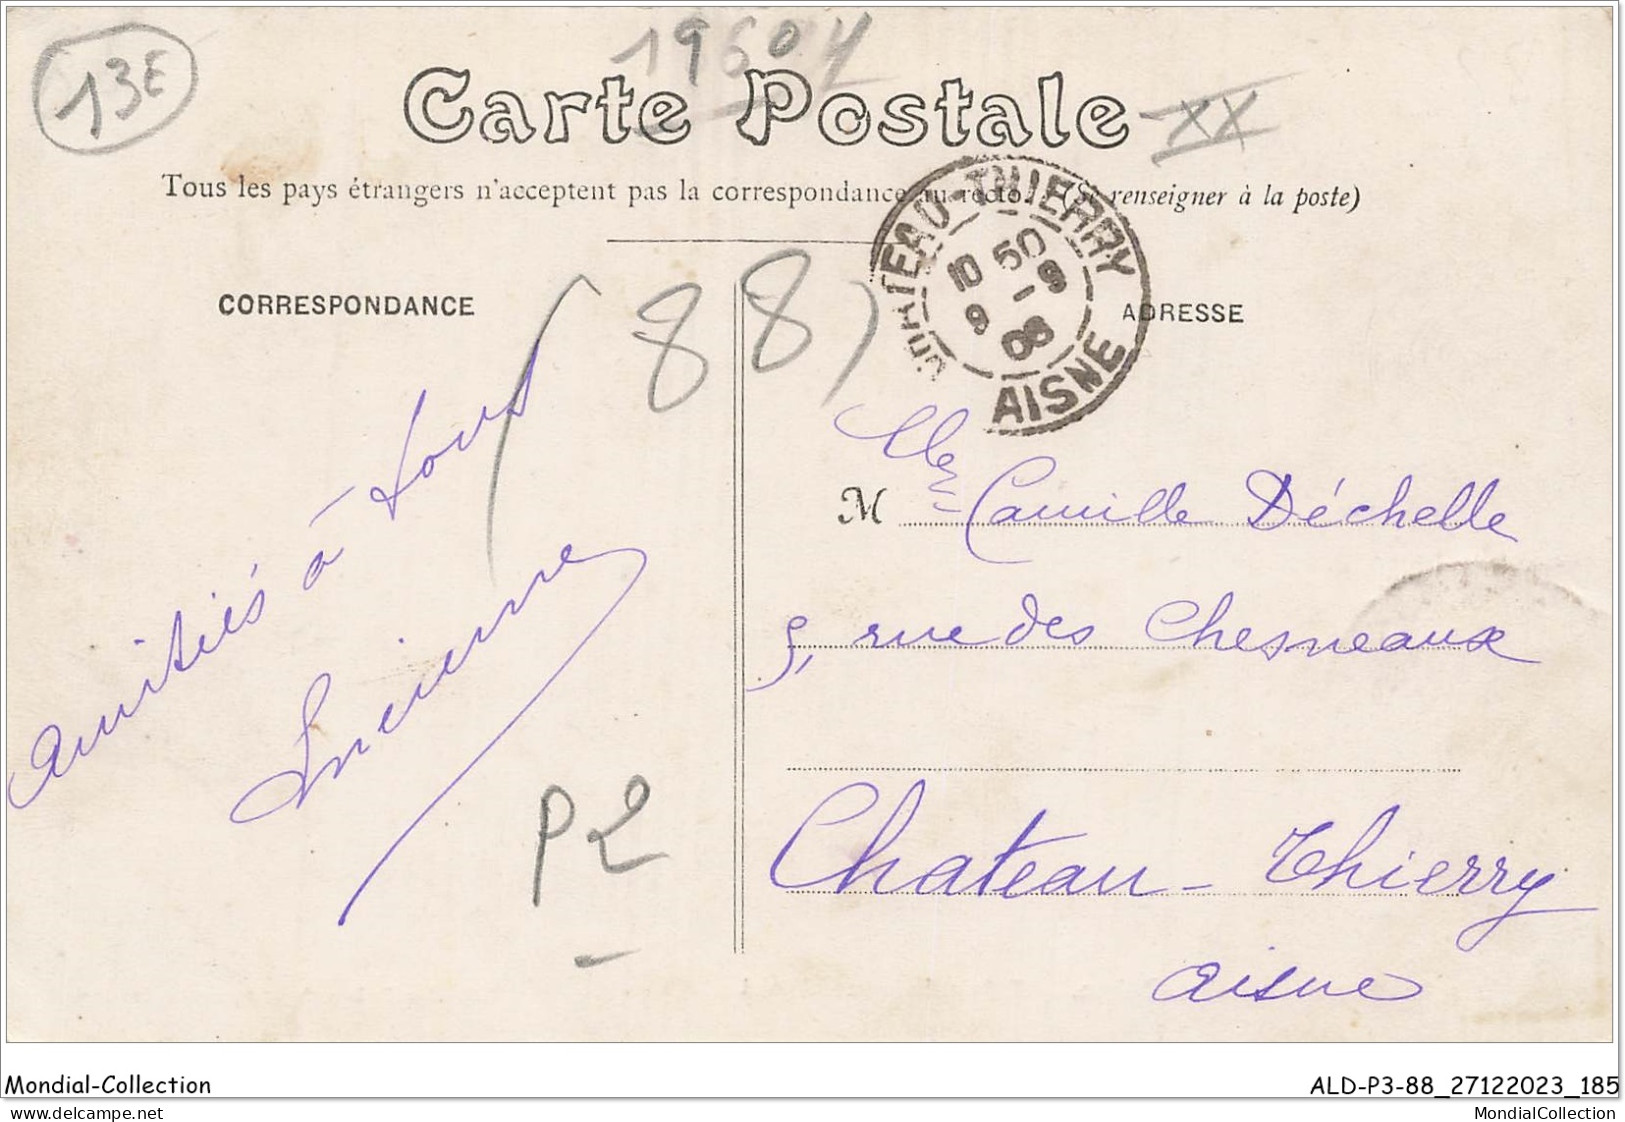 13E
19604
Carte Postale
XX
Tous les pays étrangers n'acceptent pas la correspondance au recto. (Se renseigner à la poste)
CHATEAU-THIERRY
10 50
9 - 9
08
AISNE
CORRESPONDANCE
88)
ADRESSE
amitiés à tous
M lle Camille Déchelle
5, rue des Chesneaux
P2
Chateau-Thierry
Aisne
Mondial-Collection
ALD-P3-88_27122023_185
delcampe.net
MondialCollection